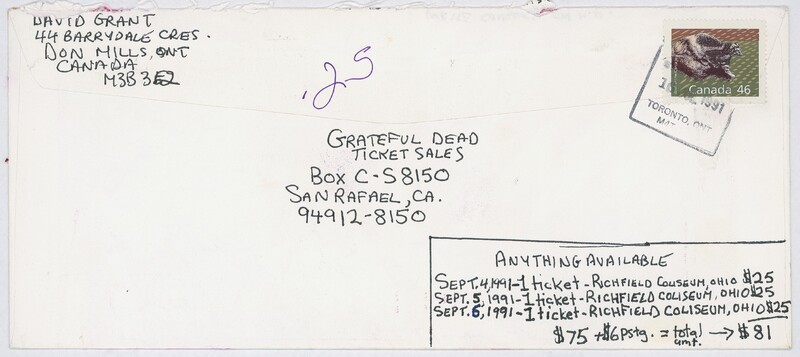 DAVID GRANT
44 BARRYDALE CRES.
DON MILLS, ONT
CANADA
M3B 3E2
.25
Canada 46
1991
TORONTO, ONT
GRATEFUL DEAD
TICKET SALES
BOX C-S8150
SAN RAFAEL, CA.
94912-8150
ANYTHING AVAILABLE
SEPT. 4, 1991-1 ticket - RICHFIELD COLISEUM, OHIO $25
SEPT. 5, 1991-1 ticket - RICHFIELD COLISEUM, OHIO $25
SEPT. 6, 1991-1 ticket - RICHFIELD COLISEUM, OHIO $25
$75 + $6 Pstg. = total amt. → $81